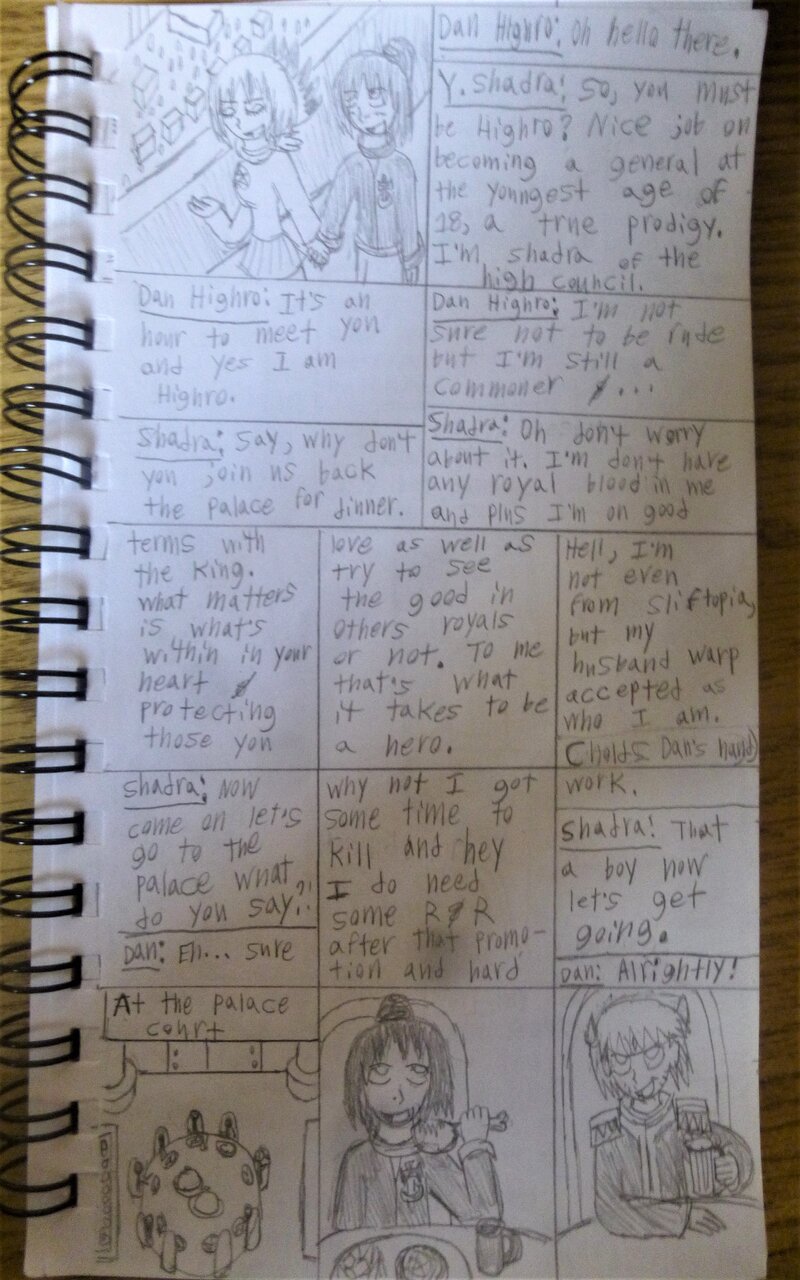 Dan Highro: Oh hello there.
Y. Shadra: So, you must
be Highro? Nice job on
becoming a general at
the youngest age of
18, a true prodigy.
I'm shadra of the
high council.
Dan Highro: It's an
hour to meet you
and yes I am
Highro.
Shadra: Say, why don't
you join us back
the palace for dinner.
Dan Highro: I'm not
sure not to be rude
but I'm still a
commoner ...
Shadra: Oh don't worry
about it. I'm don't have
any royal blood in me
and plus I'm on good
terms with
the King.
what matters
is what's
within in your
heart
protecting
those you
love as well as
try to see
the good in
others royals
or not. To me
that's what
it takes to be
a hero.
Hell, I'm
not even
from Sliftopia,
but my
husband warp
accepted as
who I am.
(holds Dan's hand)
Shadra: Now
come on let's
go to the
palace what
do you say?!
Dan: Eh... sure
why not I got
some time to
kill and hey
I do need
some R&R
after that promo-
tion and hard
work.
Shadra: That
a boy now
let's get
going.
Dan: Alrightly!
At the palace
court